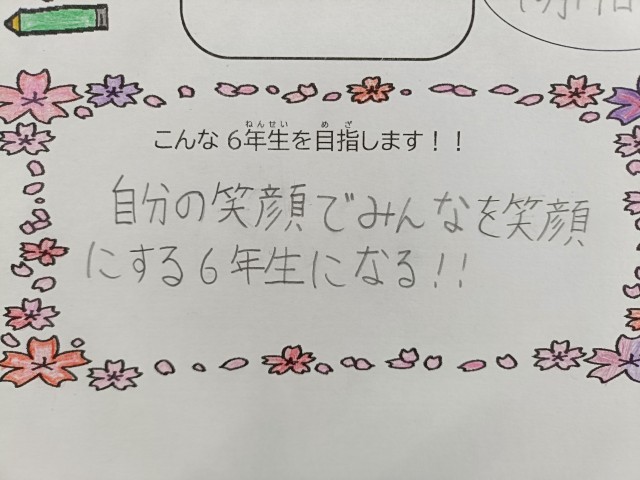 こんな6年生を目指します！！
自分の笑顔でみんなを笑顔
にする6年生になる!!